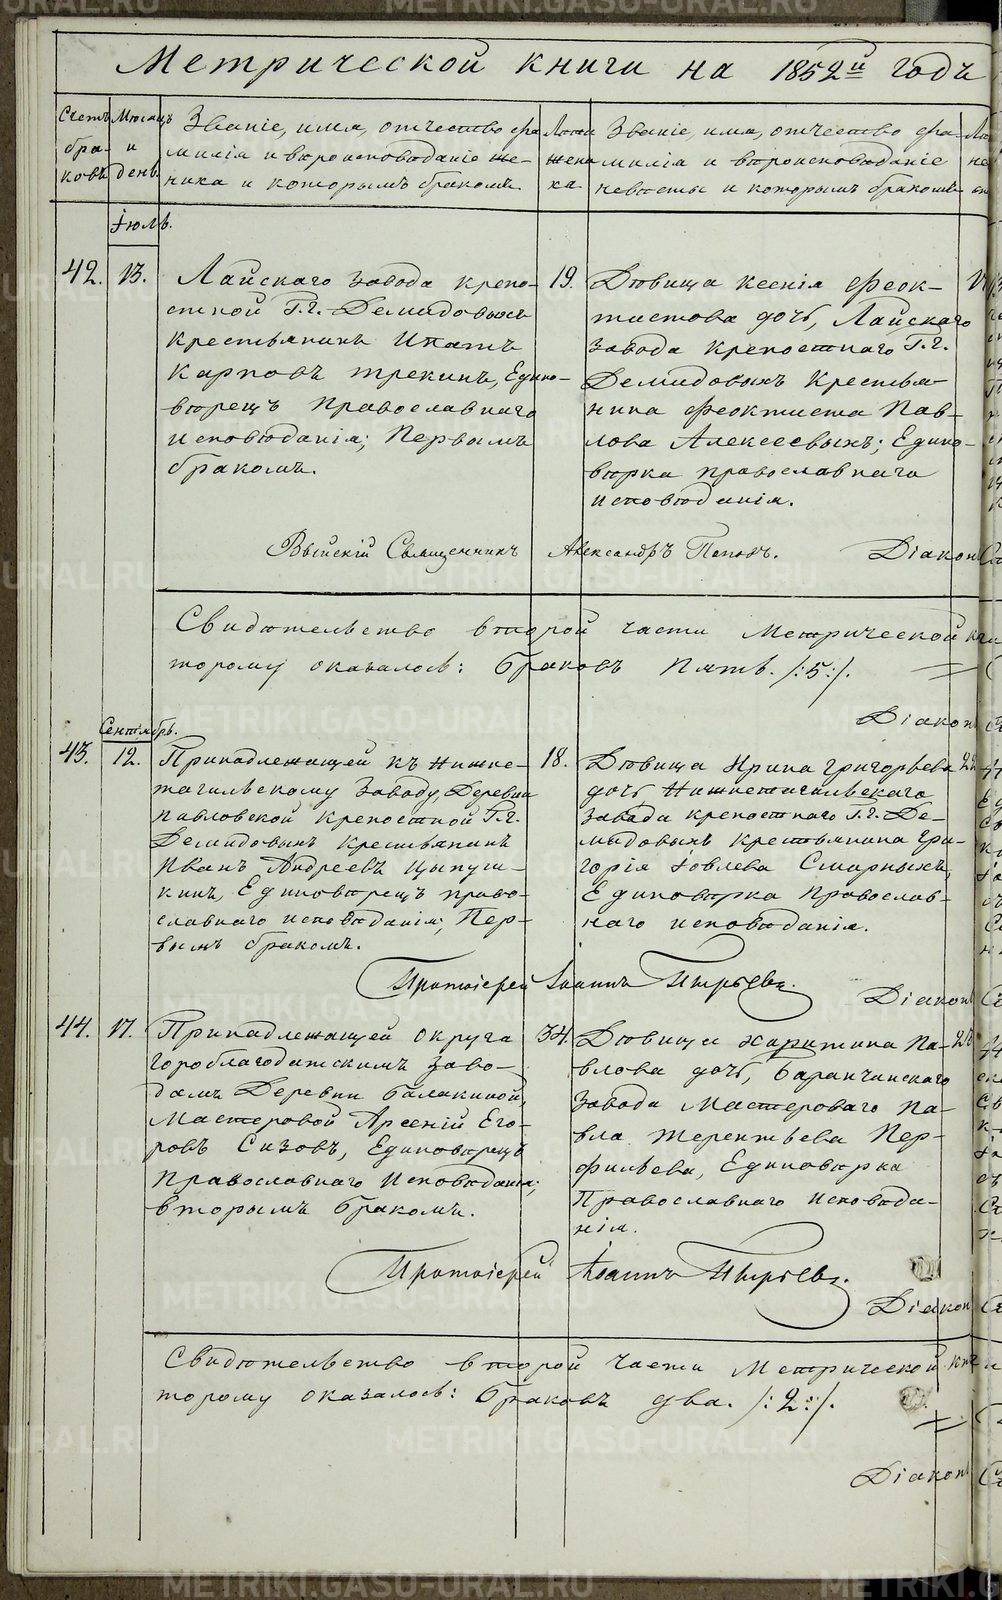 Метрической книги на 1852й годъ
Счетъ браковъ
Мѣсяцъ и день
Званіе, имя, отчество, фамилія и вѣроисповѣданіе женика и которымъ бракомъ
Лѣта жениха
Званіе, имя, отчество фамилія и вѣроисповѣданіе невѣсты и которымъ бракомъ
Іюль.
42. 13.
Лайскаго завода крепо-
стной Г.г. Демидовыхъ
крестьянинъ Ипатъ
Карповъ Трекинъ, Едино-
вѣрецъ Православнаго
исповѣданія; Первымъ
бракомъ.
19.
Дѣвица Ксенія Феок-
тистова дочь, Лайскаго
завода крепостнаго Г.г.
Демидовыхъ Крестья-
нина Феоктиста Пав-
лова Алексеевыхъ; Едино-
вѣрка православнаго
исповѣданія.
Выйскій Священникъ Александръ Поповъ. Діаконъ
Свидѣтельство второй части Метрической
торому оказалось: Браковъ пять. /:5:/.
Діаконъ
Сентябрь.
43. 12.
Принадлежащей къ Нижне-
тагильскому заводу, Деревни
Павловской крепостной Г.г.
Демидовыхъ крестьянинъ
Иванъ Андреевъ Цыпуш-
кинъ, Единовѣрецъ право-
славнаго исповѣданія; Пер-
вымъ бракомъ.
18.
Дѣвица Ирина Григорьева
дочь Нижнетагильскаго
завода крепостнаго Г.г. Де-
мидовыхъ крестьянина Гри-
горія Іовлева Смирныхъ,
Единовѣрка Православ-
наго исповѣданія.
22
Протоіерей Іоаннъ Пырьевъ.
Діаконъ
44. 17.
Принадлежащей округа
Гороблагодатскимъ заво-
дамъ Деревни Балакиной,
Мастеровой Арсеній Его-
ровъ Сизовъ, Единовѣрецъ
Православнаго Исповѣданія;
вторымъ бракомъ.
34.
Дѣвица Харитина Па-
влова дочь, Баранчинскаго
завода Мастероваго Па-
вла Терентьева Пер-
фильева, Единовѣрка
Православнаго исповѣда-
нія.
Протоіерей Іоаннъ Пырьевъ.
Діаконъ
Свидѣтельство второй части Метрической
торому оказалось: Браковъ два. /:2:/.
Діаконъ
METRIKI.GASO-URAL.RU